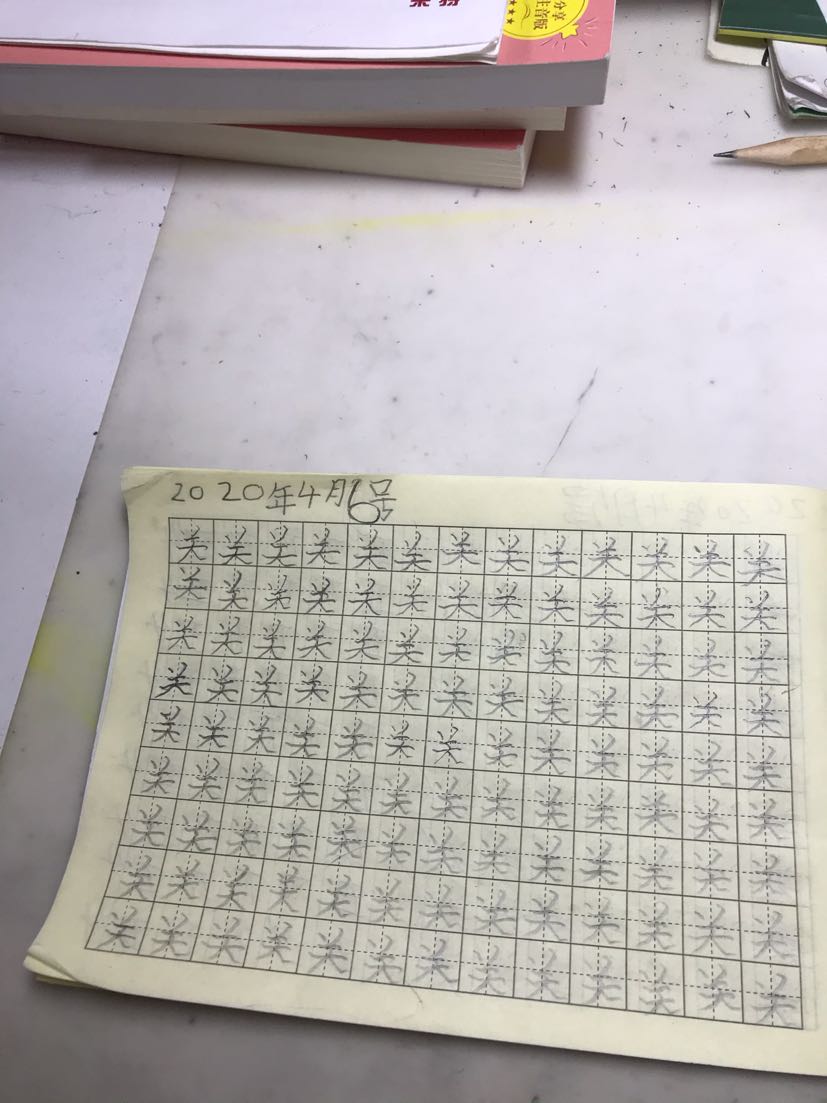 分享
注音版
2020年4月6号
关关关关关关关关关关关关关
关关关关关关关关关关关关关
关关关关关关关关关关关关关
关关关关关关关关关关关关关
关关关关关关关关关关关关关
关关关关关关关关关关关关关
关关关关关关关关关关关关关
关关关关关关关关关关关关关
关关关关关关关关关关关关关